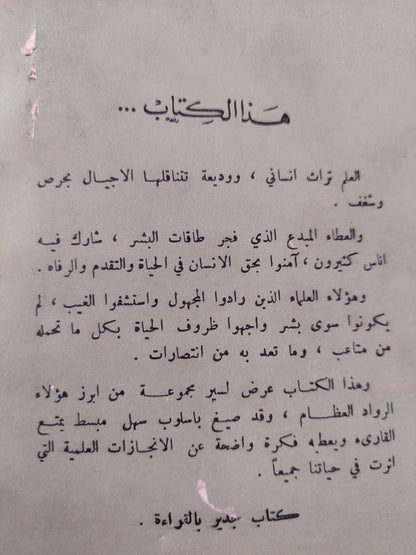 هَذا الكِتَابْ ...
العلم تراث انساني ، ووديعة تتناقلها الاجيال بحرص
وشغف .
والعطاء المبدع الذي فجر طاقات البشر ، شارك فيه
اناس كثيرون ، آمنوا بحق الانسان في الحياة والتقدم والرفاه .
وهؤلاء العلماء الذين رادوا المجهول واستشفوا الغيب ، لم
يكونوا سوى بشر واجهوا ظروف الحياة بكل ما تحمله
من متاعب ، وما تعد به من انتصارات .
وهذا الكتاب عرض لسير مجموعة من ابرز هؤلاء
الرواد العظام ، وقد صيغ باسلوب سهل مبسط يمتع
القارىء ويعطيه فكرة واضحة عن الانجازات العلمية التي
اثرت في حياتنا جميعاً .
كتاب جدير بالقراءة .